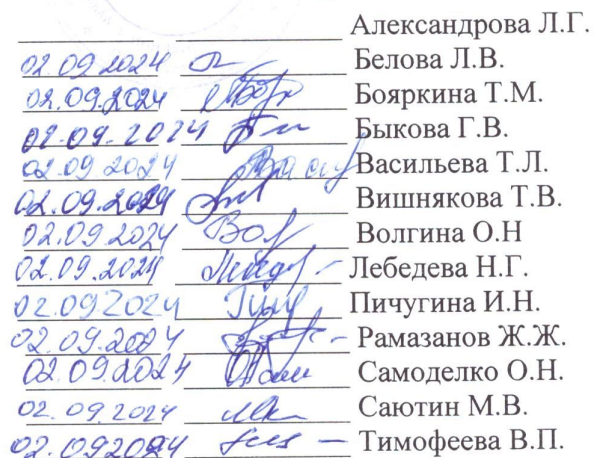 Александрова Л.Г.
02.09.2024 Белова Л.В.
02.09.2024 Бояркина Т.М.
02.09.2024 Быкова Г.В.
02.09 2024 Васильева Т.Л.
02.09.2024 Вишнякова Т.В.
02.09.2024 Волгина О.Н
02.09.2024 Лебедева Н.Г.
02.09 2024 Пичугина И.Н.
02.09.2024 Рамазанов Ж.Ж.
02.09.2024 Самоделко О.Н.
02.09.2024 Саютин М.В.
02.092024 Тимофеева В.П.